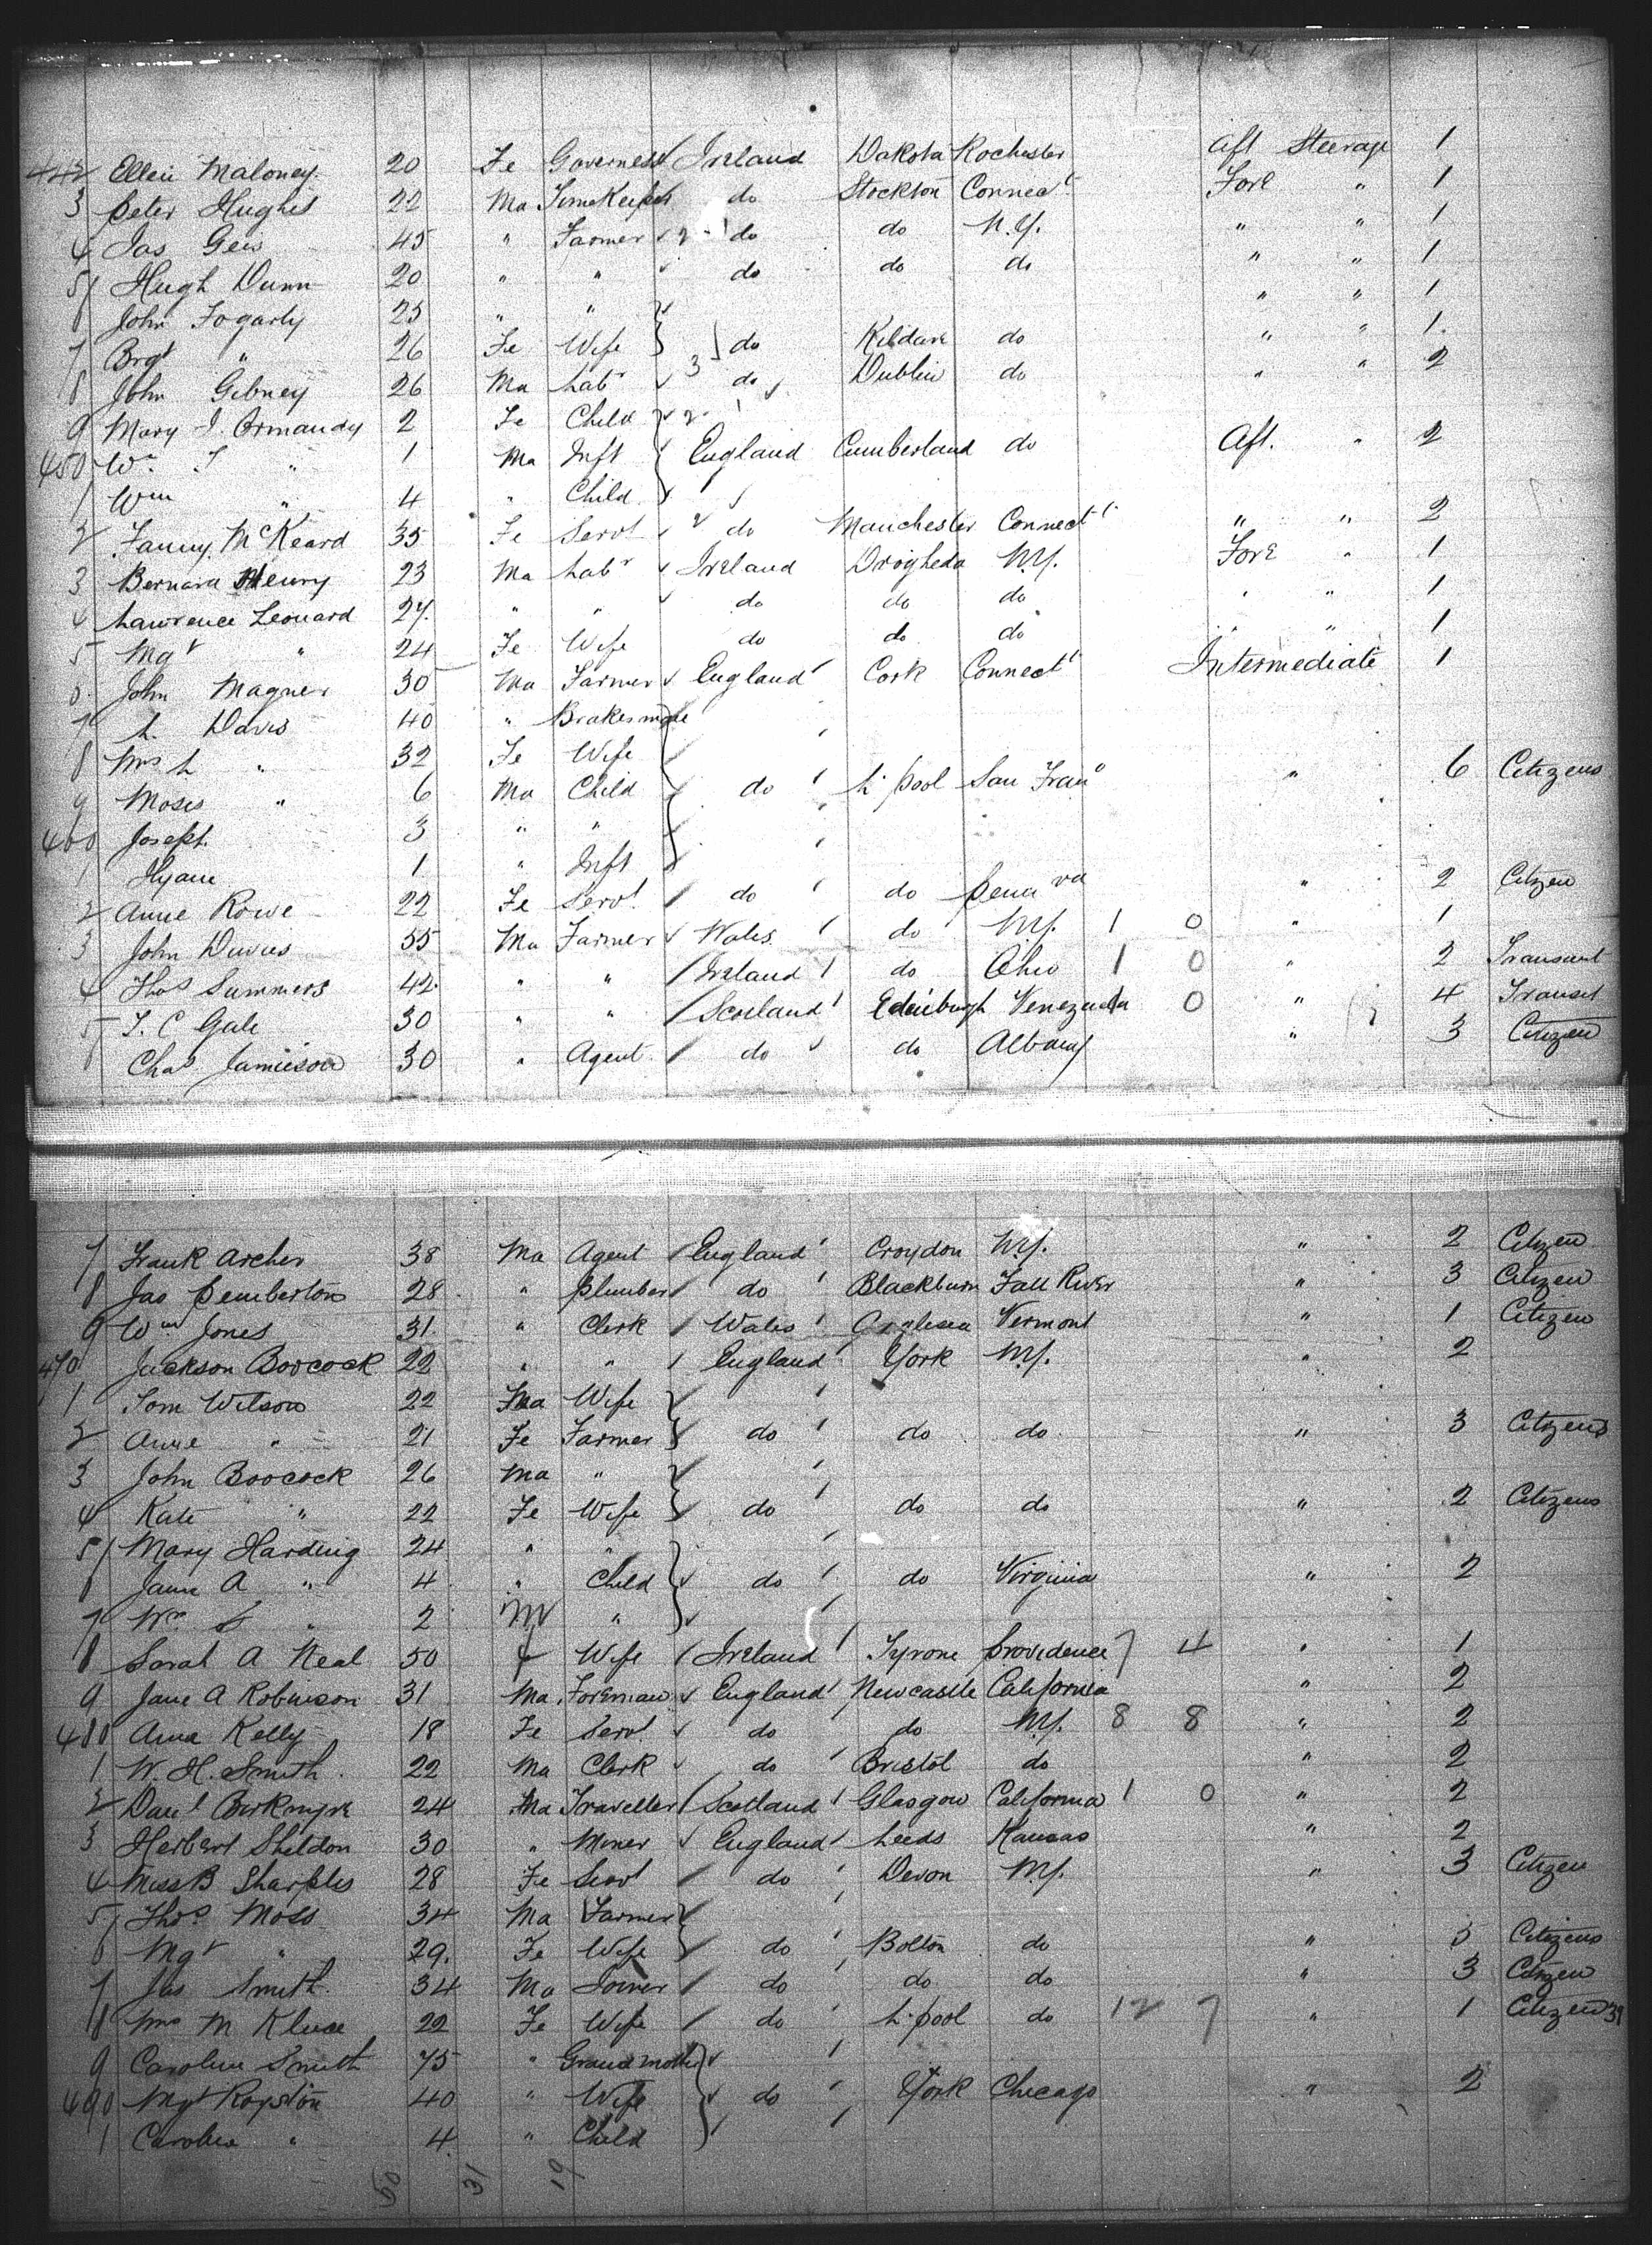 442 Ellen Maloney 20 Fe Governess Ireland Dakota Rochester Aft Steerage 1
3 Peter Hughes 22 Ma TimeKeeper do Stockton Connect Fore " 1
4 Jas 45 " Farmer 2 do do N.Y. " " 1
5 Hugh Dunn 20 " " do do do " " 1
6 John Fogarty 25 " " " " 1
7 Brgt " 26 Fe Wife 3 do Kildare do " " 1
8 John Gibney 26 Ma Labr do Dublin do " " 2
9 Mary J. Ormandy 2 Fe Child 2
450 Wm J " 1 Ma Inft England Cumberland do Aft. " 2
1 Wm " 4 " Child
2 Fanny McKeard 35 Fe Servt 2 do Manchester Connect " " 2
3 Bernard Henry 23 Ma Labr Ireland Drogheda N.Y. Fore " 1
4 Lawrence Leonard 27 " " do do do " " 1
5 Mgt " 24 Fe Wife do do do " " 1
6 John Magner 30 Ma Farmer England Cork Connect Intermediate 1
7 L. Davis 40 " Brakesman
8 Mrs L " 32 Fe Wife
9 Moses " 6 Ma Child do L'pool San Frano " 6 Citizens
460 Joseph 3 " "
1 Hyam 1 " Inft
2 Anne Rowe 22 Fe Servt do do Pena va " 2 Citizen
3 John 55 Ma Farmer Wales do N.Y. 1 0 " 1
4 Thos Summers 42 " " Ireland do Ohio 1 0 " 2 Transient
5 T. C Gale 30 " " Scotland Edinburgh Venezuela 0 " 4 Transit
6 Chas Jamieson 30 " Agent do do Albany " 3 Citizen
7 Frank Archer 38 Ma Agent England Croydon N.Y. " 2 Citizen
8 Jas Pemberton 28 " Plumber do Blackburn Fall River " 3 Citizen
9 Wm Jones 31 " Clerk Wales Anglesea Vermont " 1 Citizen
470 Jackson Boocock 22 " " England York N.Y. " 2
1 Tom Wilson 22 Ma Wife
2 Anne " 21 Fe Farmer do do do " 3 Citizens
3 John Boocock 26 Ma "
4 Kate " 22 Fe Wife do do do " 2 Citizens
5 Mary Harding 24 " "
6 Jane A " 4 " Child do do Virginia " 2
7 Wm S " 2 M "
8 Sarah A Neal 50 f Wife Ireland Tyrone Providence 7 4 " 1
9 Jane A Robinson 31 Ma Foreman England Newcastle California " 2
480 Anna Kelly 18 Fe Servt do do N.Y. 8 8 " 2
1 W. H. Smith 22 Ma Clerk do Bristol do " 2
2 Danl Birkmyre 24 Ma Traveller Scotland Glasgow California 1 0 " 2
3 Herbert Sheldon 30 " Miner England Leeds Kansas " 2
4 Miss B Sharples 28 Fe Servt do Devon N.Y. " 3 Citizen
5 Thos Moss 34 Ma Farmer
6 Mgt " 29 Fe Wife do Bolton do " 5 Citizens
7 Jas Smith 34 Ma Joiner do do do " 3 Citizen
8 Mrs M 22 Fe Wife do L'pool do 12 7 " 1 Citizens 39
9 Caroline Smith 75 " Grandmother
490 Mgt Royston 40 " Wife do York Chicago " 2
1 Caroline " 4 " Child
50 31 19